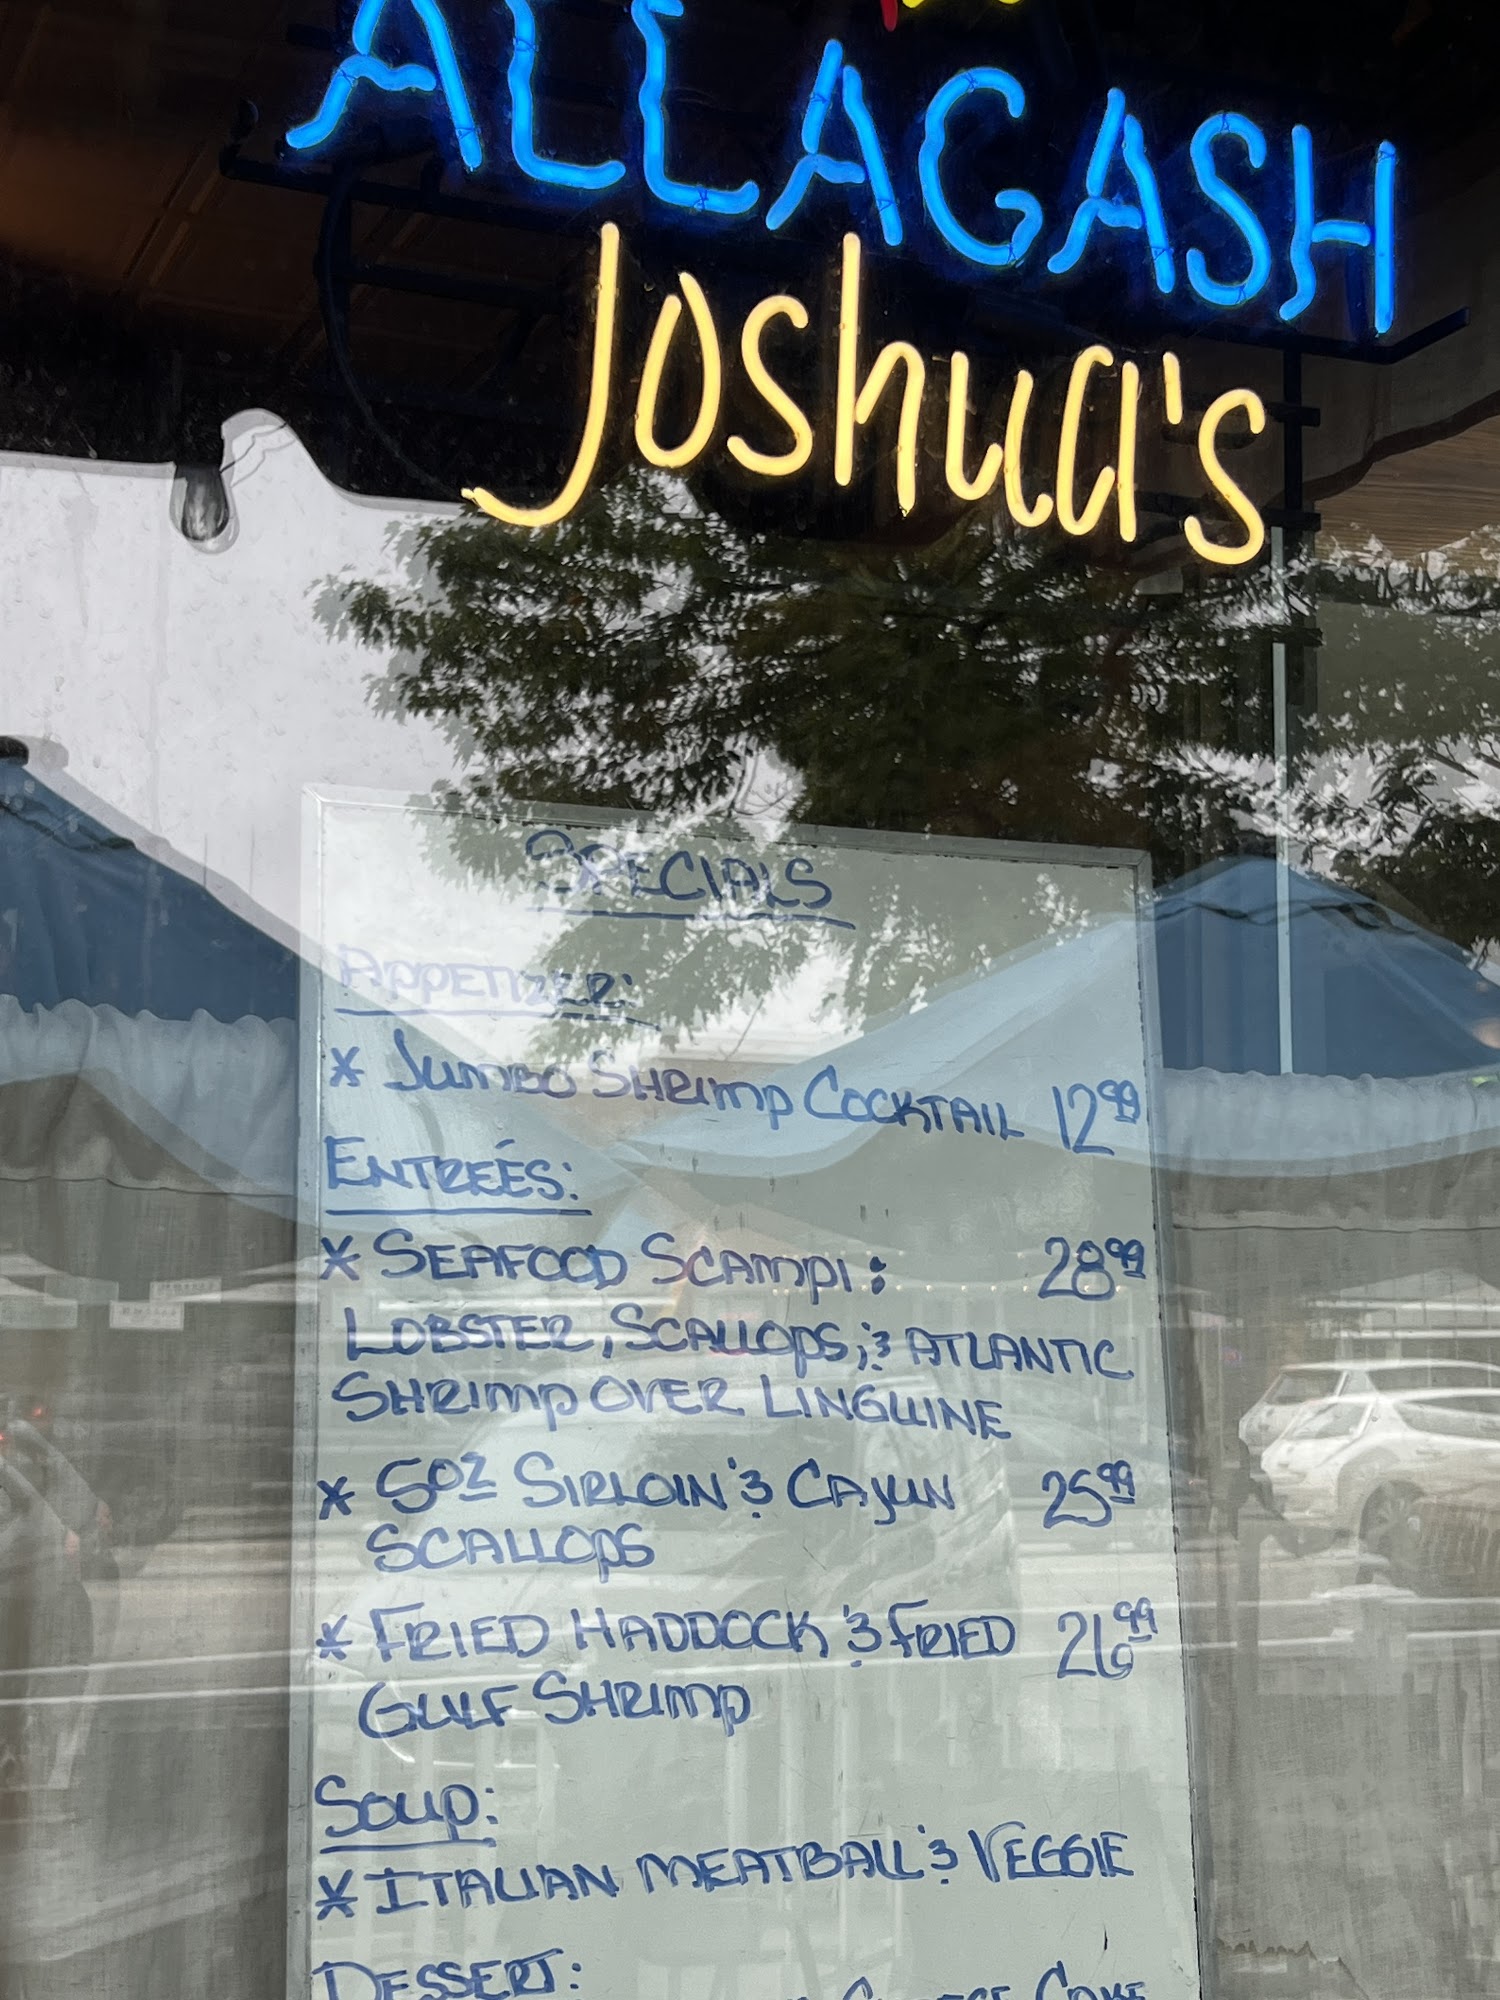 ALLAGASH
Joshua's
SPECIALS
APPETIZER:
* JUMBO SHRIMP COCKTAIL 12.99
ENTREÉS:
* SEAFOOD SCAMPI: 28.99
LOBSTER, SCALLOPS, & ATLANTIC
SHRIMP OVER LINGUINE
* 5OZ SIRLOIN & CAJUN 25.99
SCALLOPS
* FRIED HADDOCK & FRIED 26.99
GULF SHRIMP
SOUP:
* ITALIAN MEATBALL & VEGGIE
DESSERT:
CHEESE CAKE